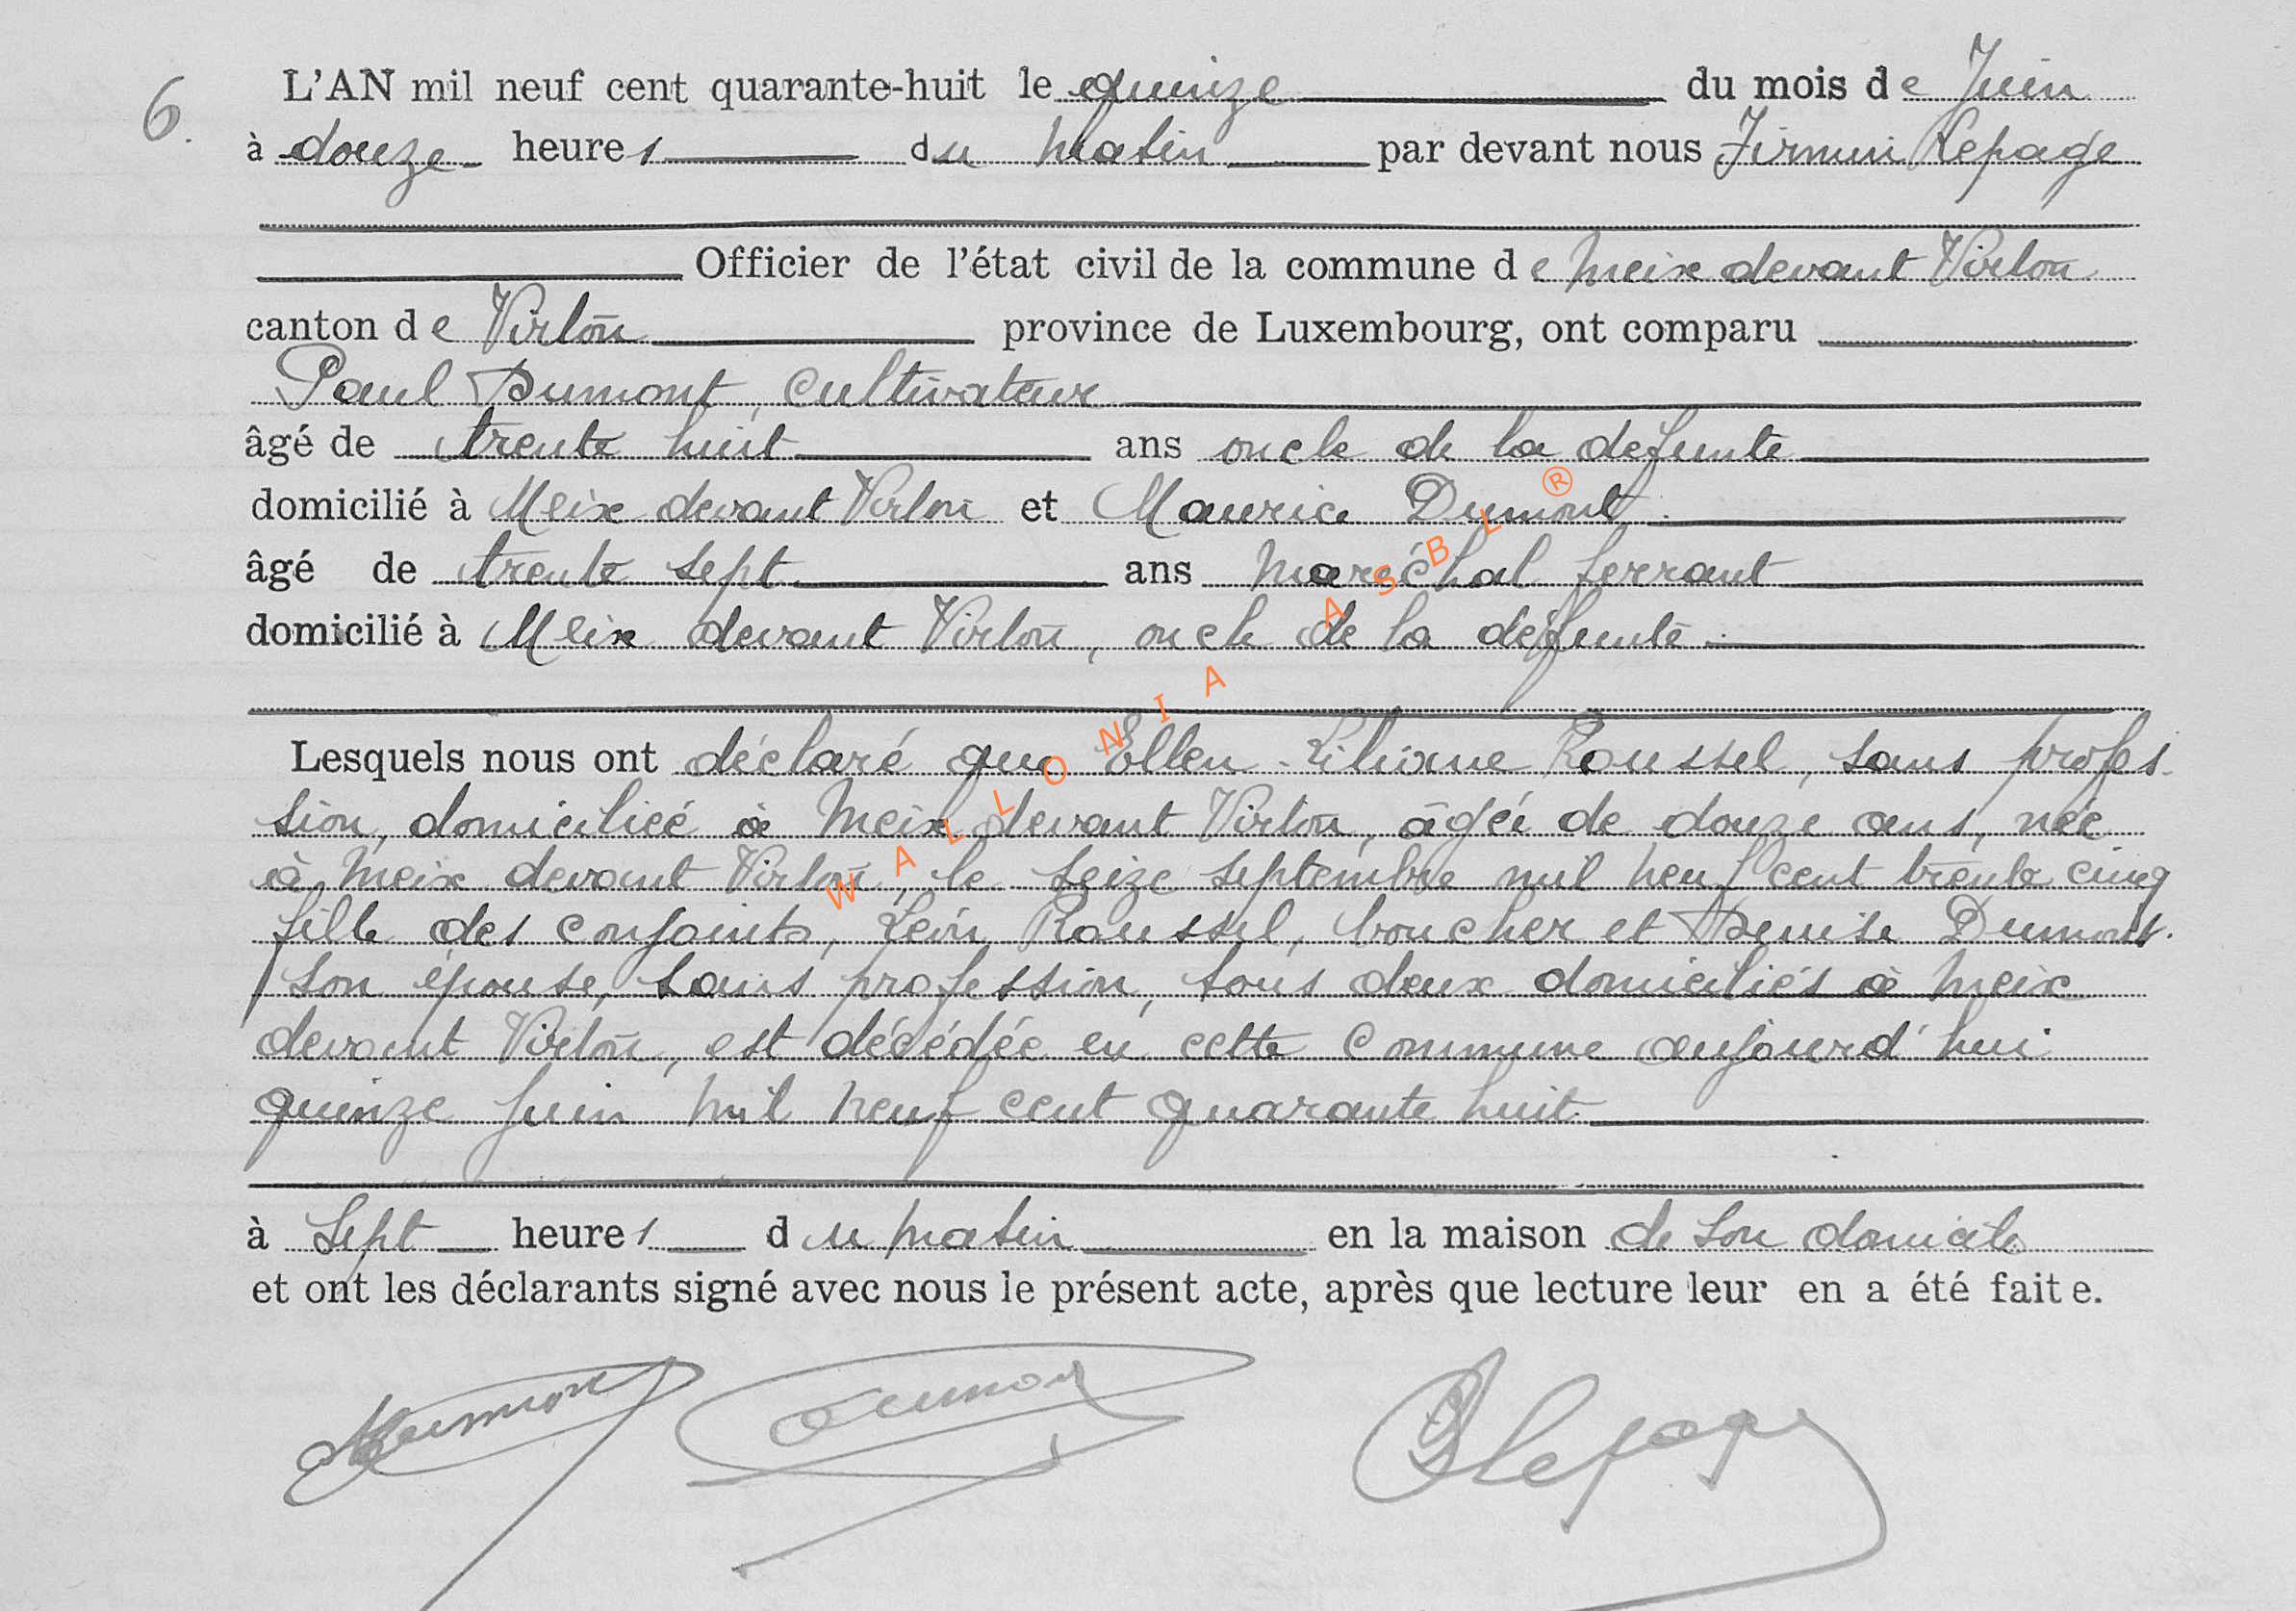 6.
L'AN mil neuf cent quarante-huit le quinze du mois de Juin
à douze heures du matin par devant nous Firmin Lepage
Officier de l'état civil de la commune de Meix devant Virton
canton de Virton province de Luxembourg, ont comparu
Paul Dumont, cultivateur
âgé de trente huit ans oncle de la defunte
domicilié à Meix devant Virton et Maurice Dumont
âgé de trente sept ans maréchal ferrant
domicilié à Meix devant Virton, oncle de la defunte
Lesquels nous ont déclaré que Ellen Liliane Roussel, sans profes-
sion, domiciliée à Meix devant Virton, âgée de douze ans, née
à Meix devant Virton, le seize septembre mil neuf cent trente cinq
fille des conjoints, Léon Roussel, boucher et Denise Dumont.
son épouse, sans profession, tous deux domiciliés à Meix
devant Virton, est décédée en cette commune aujourd'hui
quinze juin mil neuf cent quarante huit
à sept heures du matin en la maison de son domicile
et ont les déclarants signé avec nous le présent acte, après que lecture leur en a été faite.
Dumont Dumont Lepage
WALLONIA ASBL ®